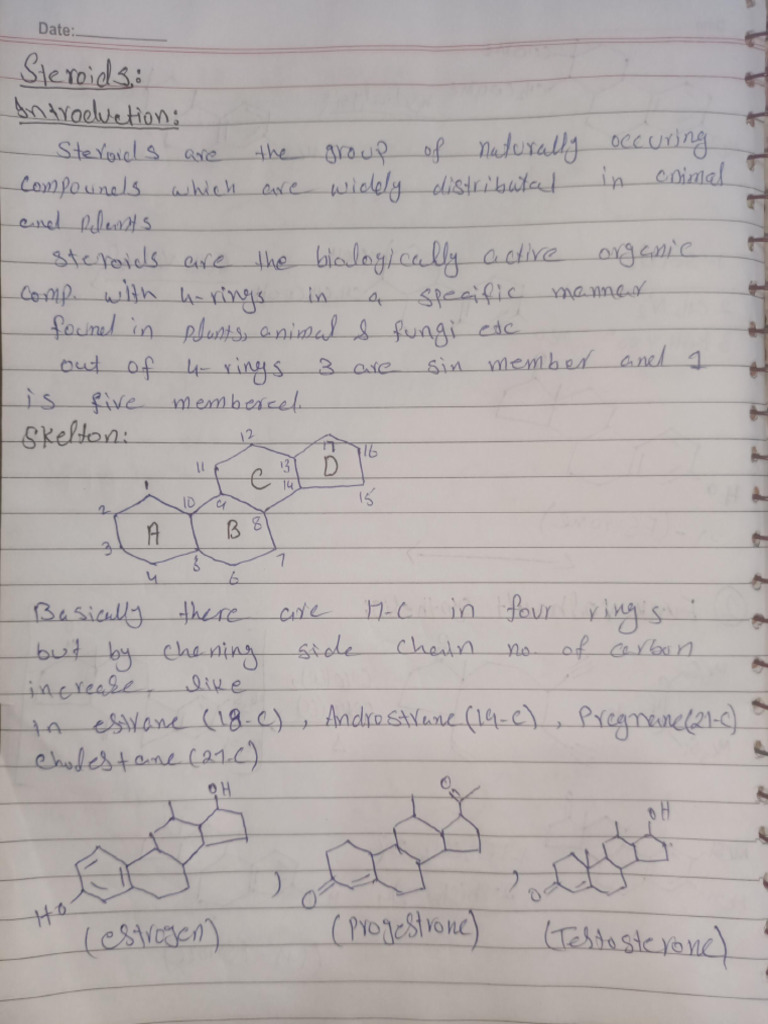 Date:
Steroids:
Introduction:
Steroids are the group of naturally occuring
compounds which are widely distributed in animal
and plants
steroids are the biologically active organic
comp. with 4-rings in a specific manner
found in plants, animal & fungi etc
out of 4-rings 3 are sin member and 1
is five membered.
Skelton:
12
11 13 17 16
C D
14 15
1
2 10 9
A B 8
3
4 5 6 7
Basically there are 17-C in four rings
but by chening side chain no. of carbon
increase, like
in estrane (18-C), Androstrane (19-C), Pregnane (21-C)
Cholestane (27-C)
OH O OH
HO O O
(estrogen) , (Progestrone) , (Testosterone)